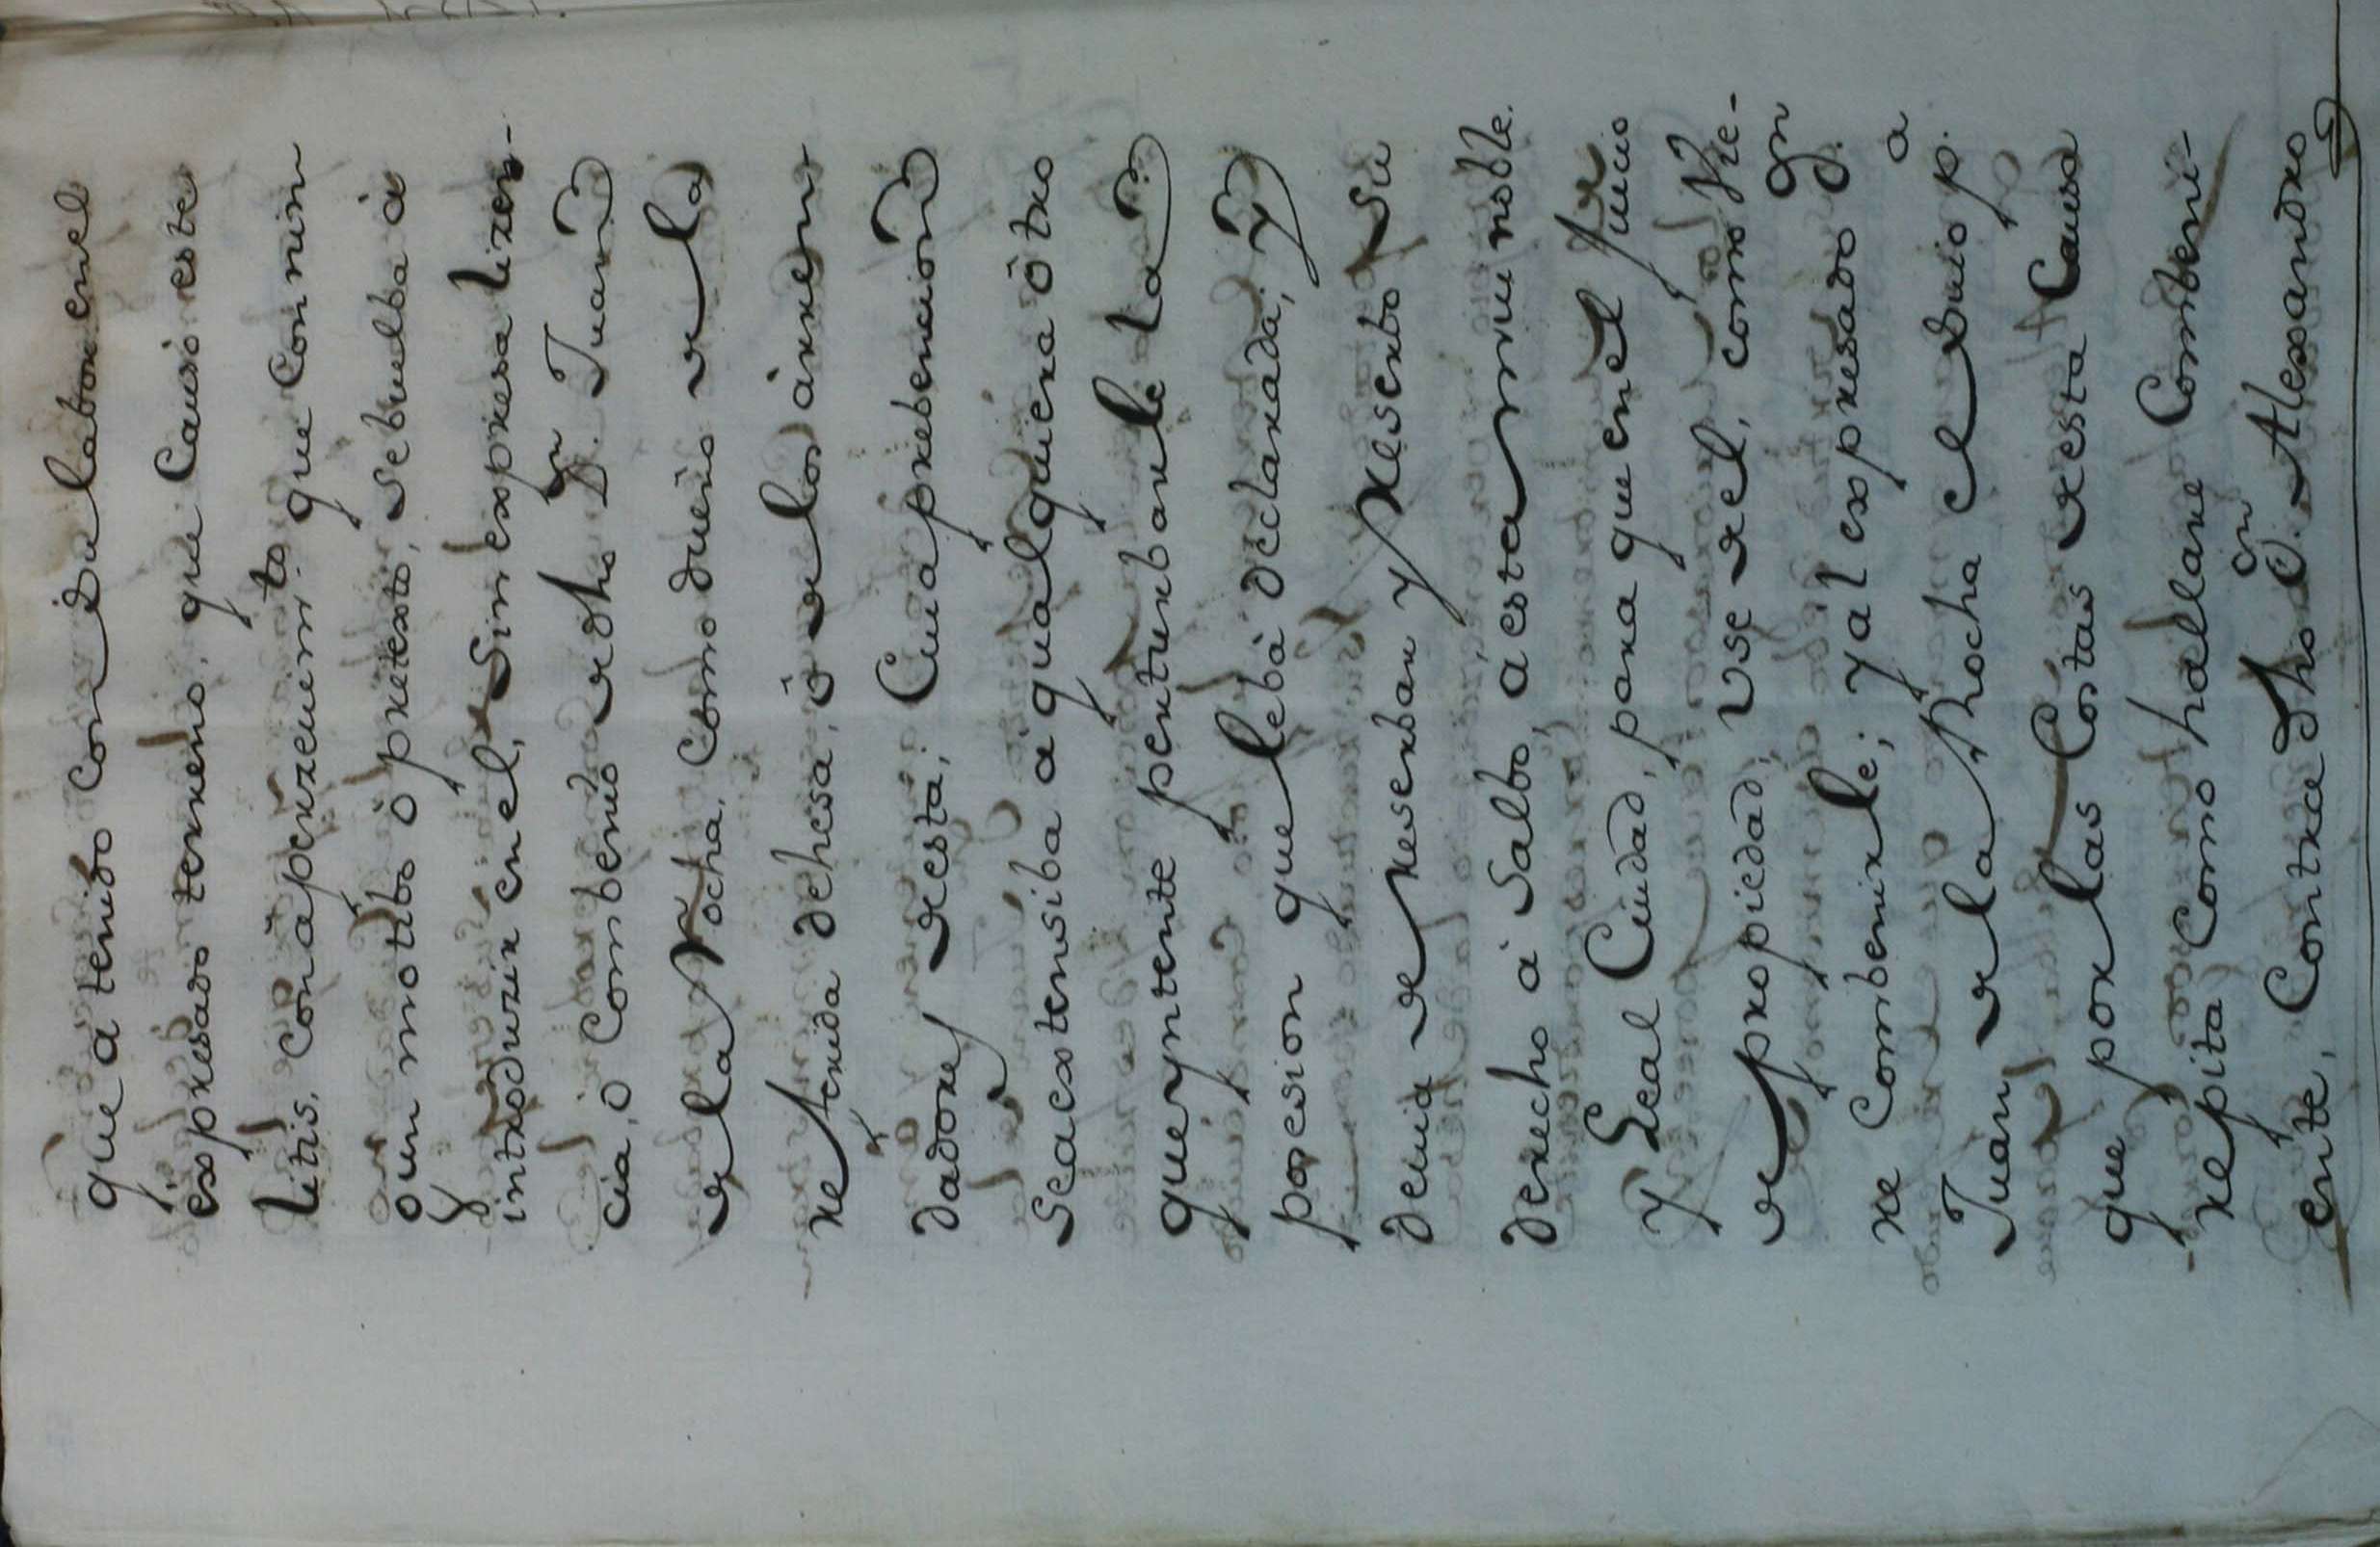 que a tenido con su labor en el
expresado terreno, que Causò este
Litis, con àperzevim.to que Con nin
gun motibo ò pretexto, se buelba à
introduzir en el, sin expresa lizen-
cia, o Combenio de dho D.n Juan
de la Rocha, como dueño de la
referida dehesa, ô de los àrren
dadores de esta; Cuia prebencion
sea extensiba à qualquiera ôtro
que yntente perturbarle la
posesion que lebà declarada; y
devia de reserbar y reserbo su
derecho à Salbo, à esta mui noble.
y Leal Ciudad, para que en el Juicio
de propiedad, use de el, como vie-
re Combenirle; y al expresado D.n
Juan de la Rocha el suio p.a
que por las Costas de esta Causa
repita Como hallare Combeni-
ente, Contra dho D.n Alexandro